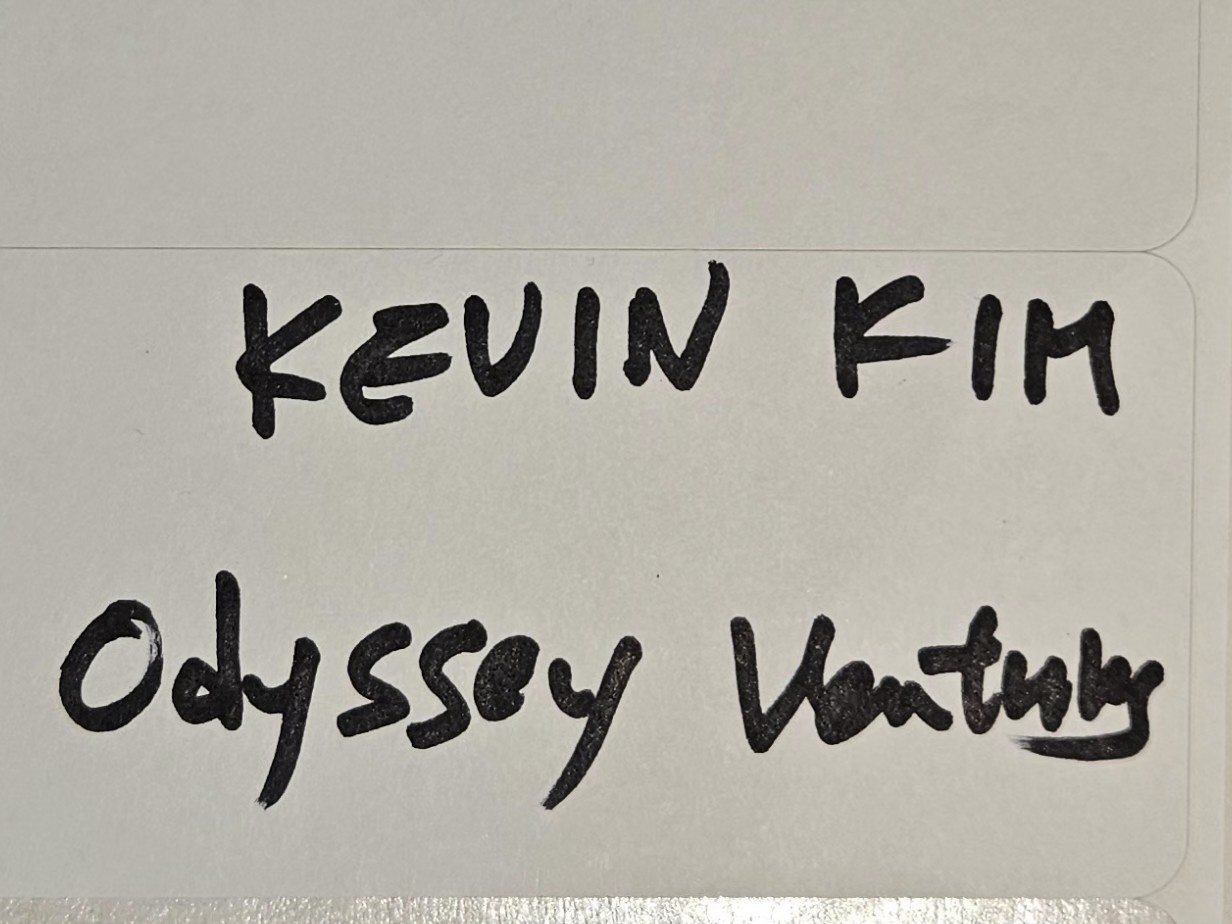 KEVIN KIM
Odyssey Ventures